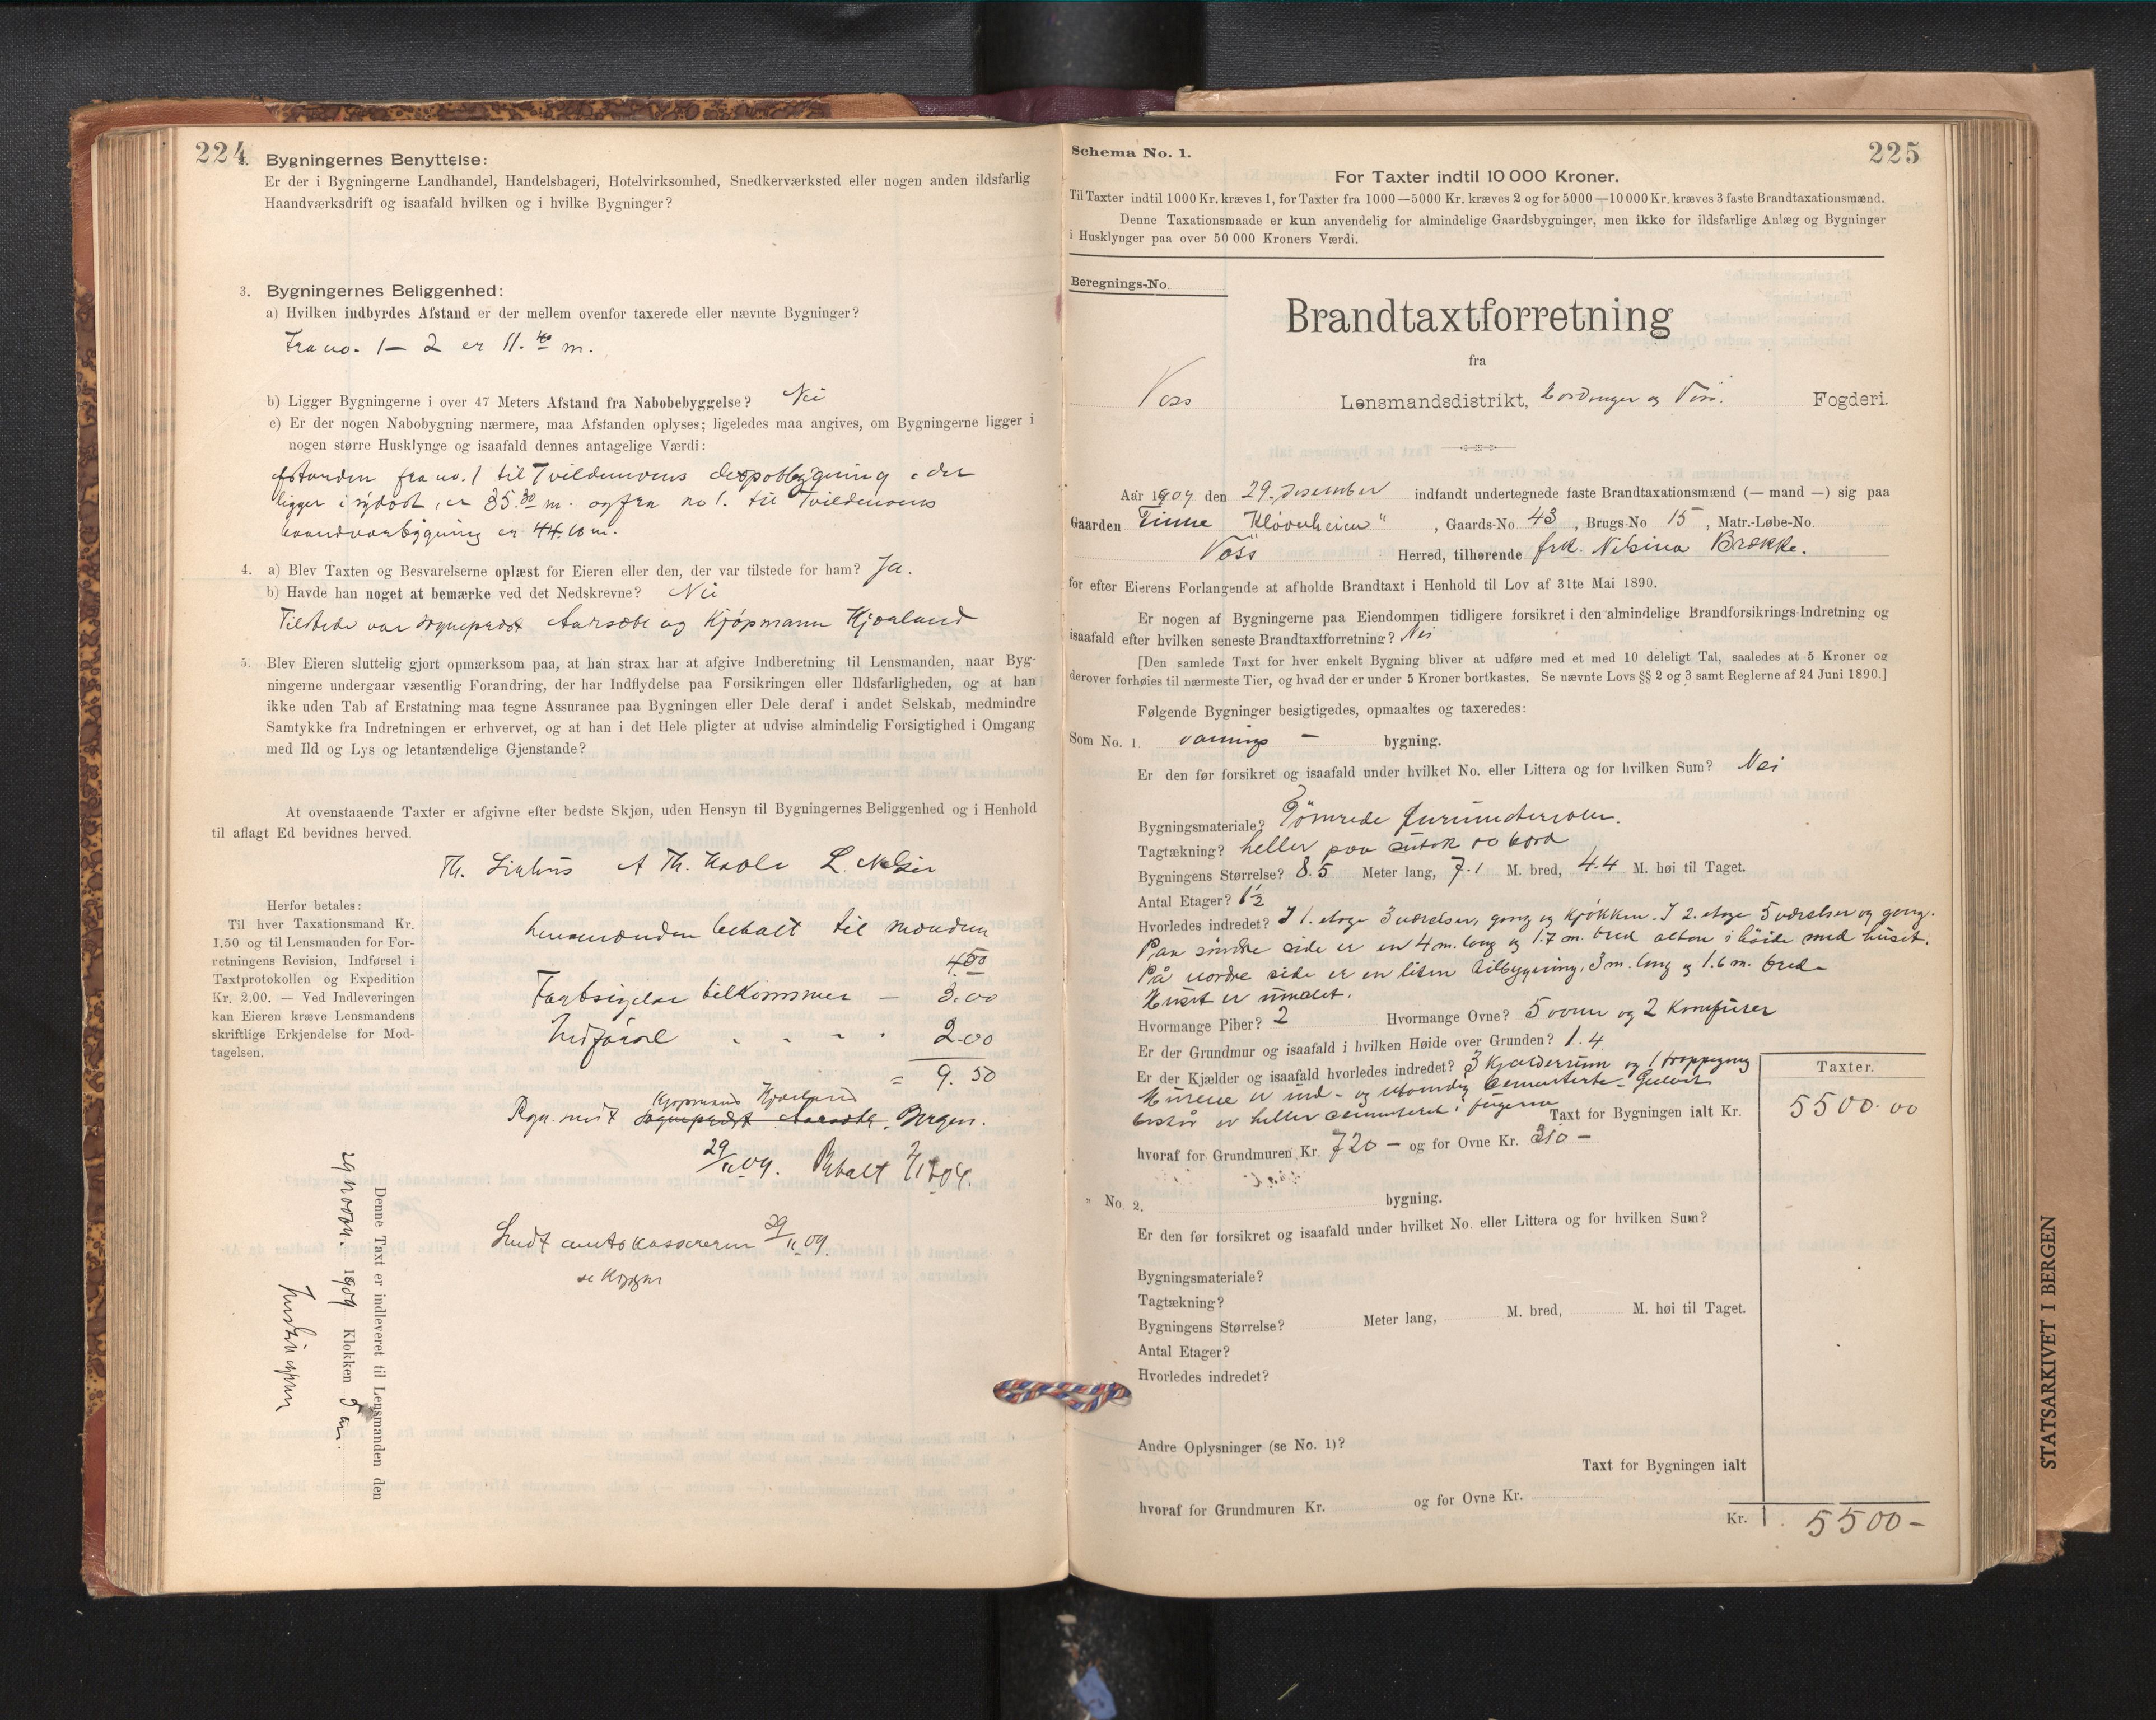 224
2. Bygningernes Benyttelse:
Er der i Bygningerne Landhandel, Handelsbageri, Hotelvirksomhed, Snedkerværksted eller nogen anden ildsfarlig
Haandværksdrift og isaafald hvilken og i hvilke Bygninger?
3. Bygningernes Beliggenhed:
a) Hvilken indbyrdes Afstand er der mellem ovenfor taxerede eller nævnte Bygninger?
Fra no. 1 – 2 er 11.40 m.
b) Ligger Bygningerne i over 47 Meters Afstand fra Nabobebyggelse? Nei
c) Er der nogen Nabobygning nærmere, maa Afstanden oplyses; ligeledes maa angives, om Bygningerne ligger i
nogen større Husklynge og isaafald dennes antagelige Værdi:
fra no. 1 til Tvildemoens depotbygning, der
ligger i sydost, er 35.30 m. og fra no 1. til Tvildemoens
er 44.60 m.
4. a) Blev Taxten og Besvarelserne oplæst for Eieren eller den, der var tilstede for ham? Ja.
b) Havde han noget at bemærke ved det Nedskrevne? Nei
Tilstede var sogneprest Aarsæbe og Kjøpmann Hjørland
5. Blev Eieren sluttelig gjort opmærksom paa, at han strax har at afgive Indberetning til Lensmanden, naar Byg-
ningerne undergaar væsentlig Forandring, der har Indflydelse paa Forsikringen eller Ildsfarligheden, og at han
ikke uden Tab af Erstatning maa tegne Assurance paa Bygningen eller Dele deraf i andet Selskab, medmindre
Samtykke fra Indretningen er erhvervet, og at han i det Hele pligter at udvise almindelig Forsigtighed i Omgang
med Ild og Lys og letantændelige Gjenstande?
At ovenstaaende Taxter er afgivne efter bedste Skjøn, uden Hensyn til Bygningernes Beliggenhed og i Henhold
til aflagt Ed bevidnes herved.
Th. A Th. L.
Herfor betales:
Til hver Taxationsmand Kr.
1.50 og til Lensmanden for For-
retningens Revision, Indførsel i
Taxtprotokollen og Expedition
Kr. 2.00. — Ved Indleveringen
kan Eieren kræve Lensmandens
skriftlige Erkjendelse for Mod-
tagelsen.
Lensmanden betalt til mændene
4.50
tilkommer – 3.00
Indførsel 2.00
= 9.50
Kjøpmann Hjørland
Regn. sendt sogneprest Bergen.
29/11 09. Betalt
Sendt amtskassereren 29/11 09.
Denne Taxt er indleveret til Lensmanden den
29 novbr. 1909 Klokken 5 em.
Schema No. 1.
225
For Taxter indtil 10 000 Kroner.
Til Taxter indtil 1000 Kr. kræves 1, for Taxter fra 1000—5000 Kr. kræves 2 og for 5000—10000 Kr. kræves 3 faste Brandtaxationsmænd.
Denne Taxationsmaade er kun anvendelig for almindelige Gaardsbygninger, men ikke for ildsfarlige Anlæg og Bygninger
i Husklynger paa over 50 000 Kroners Værdi.
Beregnings-No.
Brandtaxtforretning
fra
Voss Lensmandsdistrikt, Hardanger og Voss. Fogderi.
Aar 1909 den 29. desember indfandt undertegnede faste Brandtaxationsmænd (— mand —) sig paa
Gaarden Finne "Kløverheien" , Gaards-No 43 , Brugs-No 15 , Matr.-Løbe-No.
Voss Herred, tilhørende frk. Nilsina Brække.
for efter Eierens Forlangende at afholde Brandtaxt i Henhold til Lov af 31te Mai 1890.
Er nogen af Bygningerne paa Eiendommen tidligere forsikret i den almindelige Brandforsikrings-Indretning og
isaafald efter hvilken seneste Brandtaxtforretning? Nei
[Den samlede Taxt for hver enkelt Bygning bliver at udføre med et med 10 deleligt Tal, saaledes at 5 Kroner og
derover forhøies til nærmeste Tier, og hvad der er under 5 Kroner bortkastes. Se nævnte Lovs §§ 2 og 3 samt Reglerne af 24 Juni 1890.]
Følgende Bygninger besigtigedes, opmaaltes og taxeredes:
Som No. 1. vaanings – bygning.
Er den før forsikret og isaafald under hvilket No. eller Littera og for hvilken Sum? Nei
Bygningsmateriale? Tømrede furumaterialer.
Tagtækning? heller paa sutak og bord
Bygningens Størrelse? 8.5 Meter lang, 7.1 M. bred, 4.4 M. høi til Taget.
Antal Etager? 1½
Hvorledes indredet? I 1. etage 3 værelser, gang og kjøkken. I 2. etage 5 værelser og gang.
Paa søndre side er en 4 m. lang og 1.7 m. bred altan i høide med huset.
På nordre side er en liten tilbygning, 3 m. lang og 1.6 m. bred.
Huset er malet.
Hvormange Piber? 2 Hvormange Ovne? 5 ovner og 2 komfurer
Er der Grundmur og isaafald i hvilken Høide over Grunden? 1.4
Er der Kjælder og isaafald hvorledes indredet? 3 Kjælderrum og 1 trappegang
Murene er ind- og utvendig cementerte. Gulvet
består av heller cementeret i fugerne
Taxter.
Taxt for Bygningen ialt Kr. 5500.00
hvoraf for Grundmuren Kr. 720 – og for Ovne Kr. 310 –
" No. 2. bygning.
Er den før forsikret og isaafald under hvilket No. eller Littera og for hvilken Sum?
Bygningsmateriale?
Tagtækning?
Bygningens Størrelse? Meter lang, M. bred, M. høi til Taget.
Antal Etager?
Hvorledes indredet?
Andre Oplysninger (se No. 1)?
Taxt for Bygningen ialt
hvoraf for Grundmuren Kr. og for Ovne Kr.
Kr. 5500 –
STATSARKIVET I BERGEN